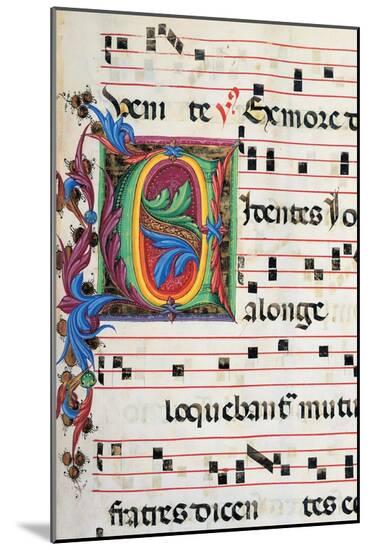 veni te ℣ Ex more d
Videntes Jo
alonge
loquebant᷑ mutu
fratres dicen tes ec